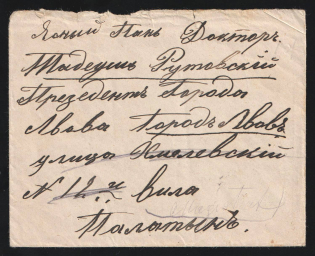 Ясний Пань Докторъ.
Тадеушъ Рутовскій
Презедентъ Города
Львова Городъ Львовъ
улица Хмелевскій
№ 12. и вила
Палатынъ.